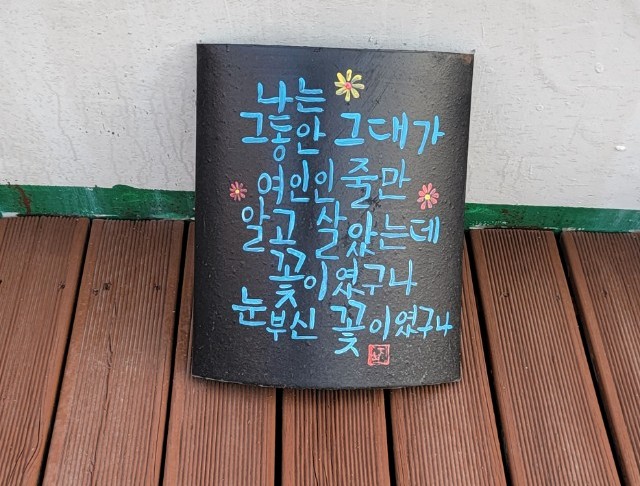 나는
그동안 그대가
여인인 줄만
알고 살았는데
꽃이였구나
눈부신 꽃이였구나